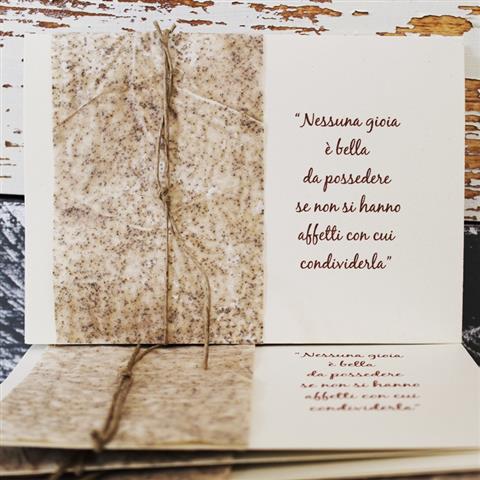 “Nessuna gioia
è bella
da possedere
se non si hanno
affetti con cui
condividerla”
“Nessuna gioia
è bella
da possedere
se non si hanno
affetti con cui
condividerla”